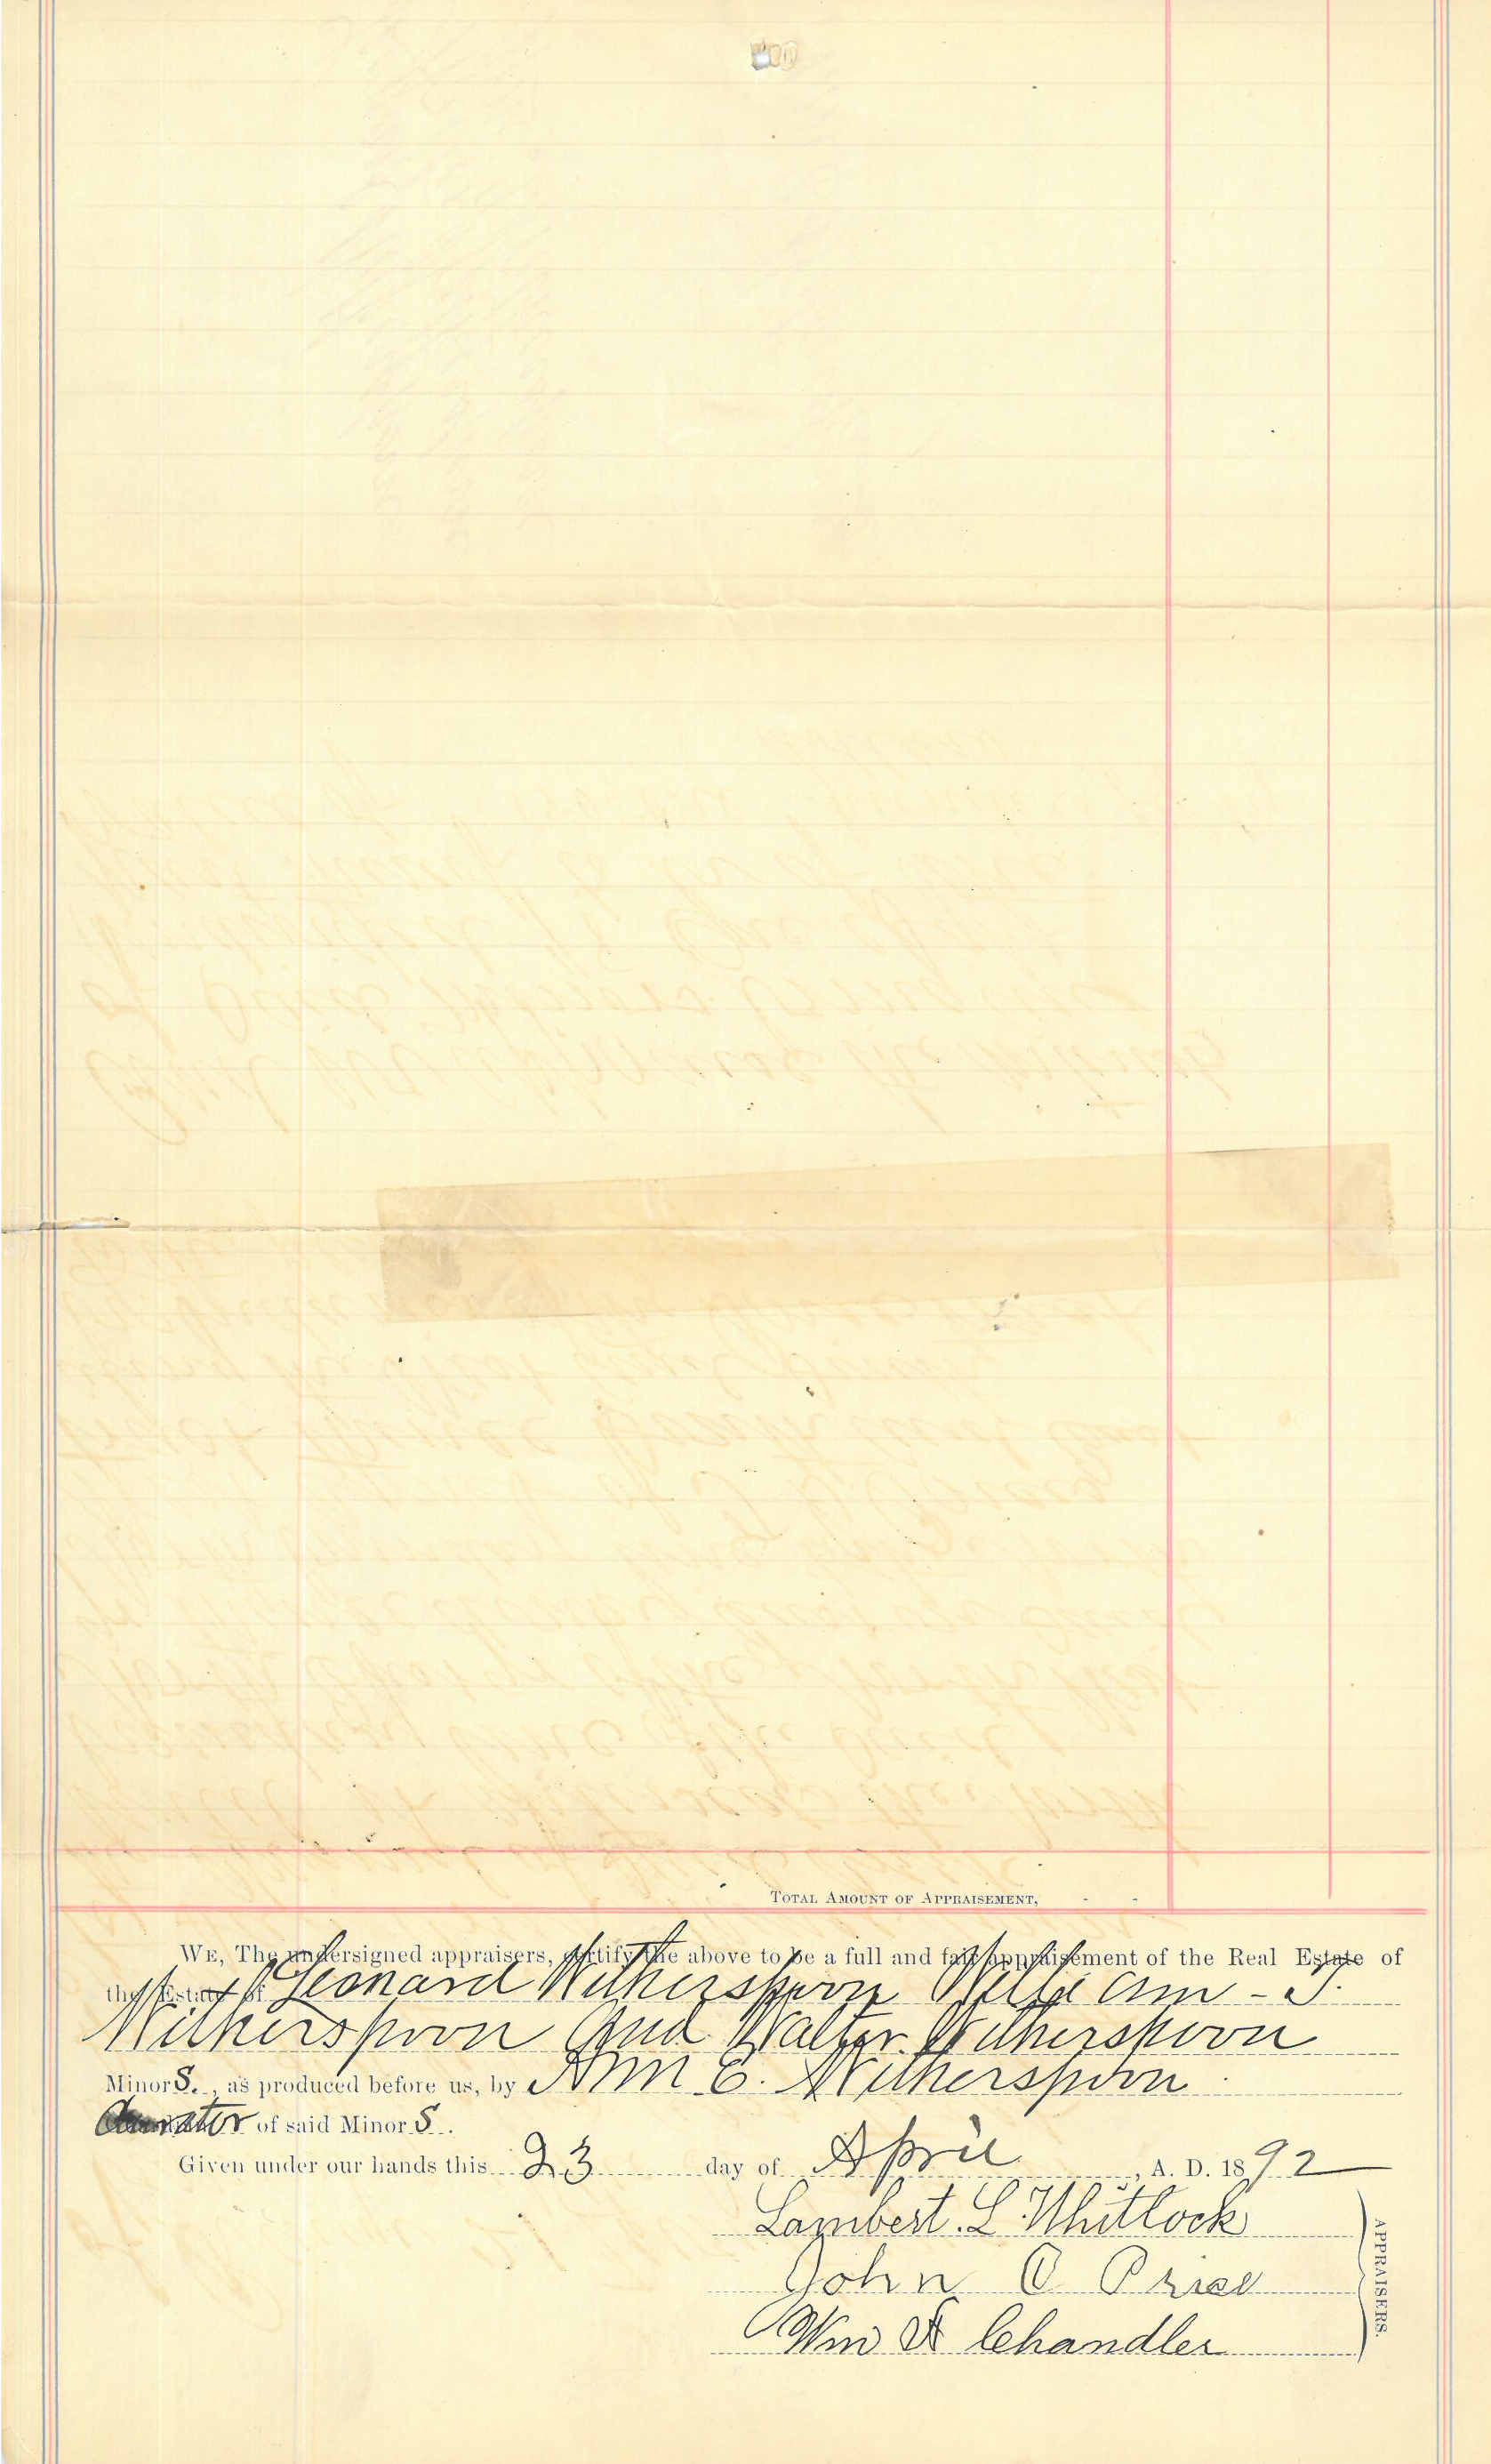 TOTAL AMOUNT OF APPRAISEMENT, - -
WE, The undersigned appraisers, certify the above to be a full and fair appraisement of the Real Estate of
the Estate of Leonard Witherspoon William - T.
Witherspoon And Walter Witherspoon
Minors., as produced before us, by Ann E. Witherspoon
Curator of said Minor S.
Given under our hands this 23 day of April, A. D. 1892
Lambert. L Whitlock
John O Price
Wm F Chandler
APPRAISERS.